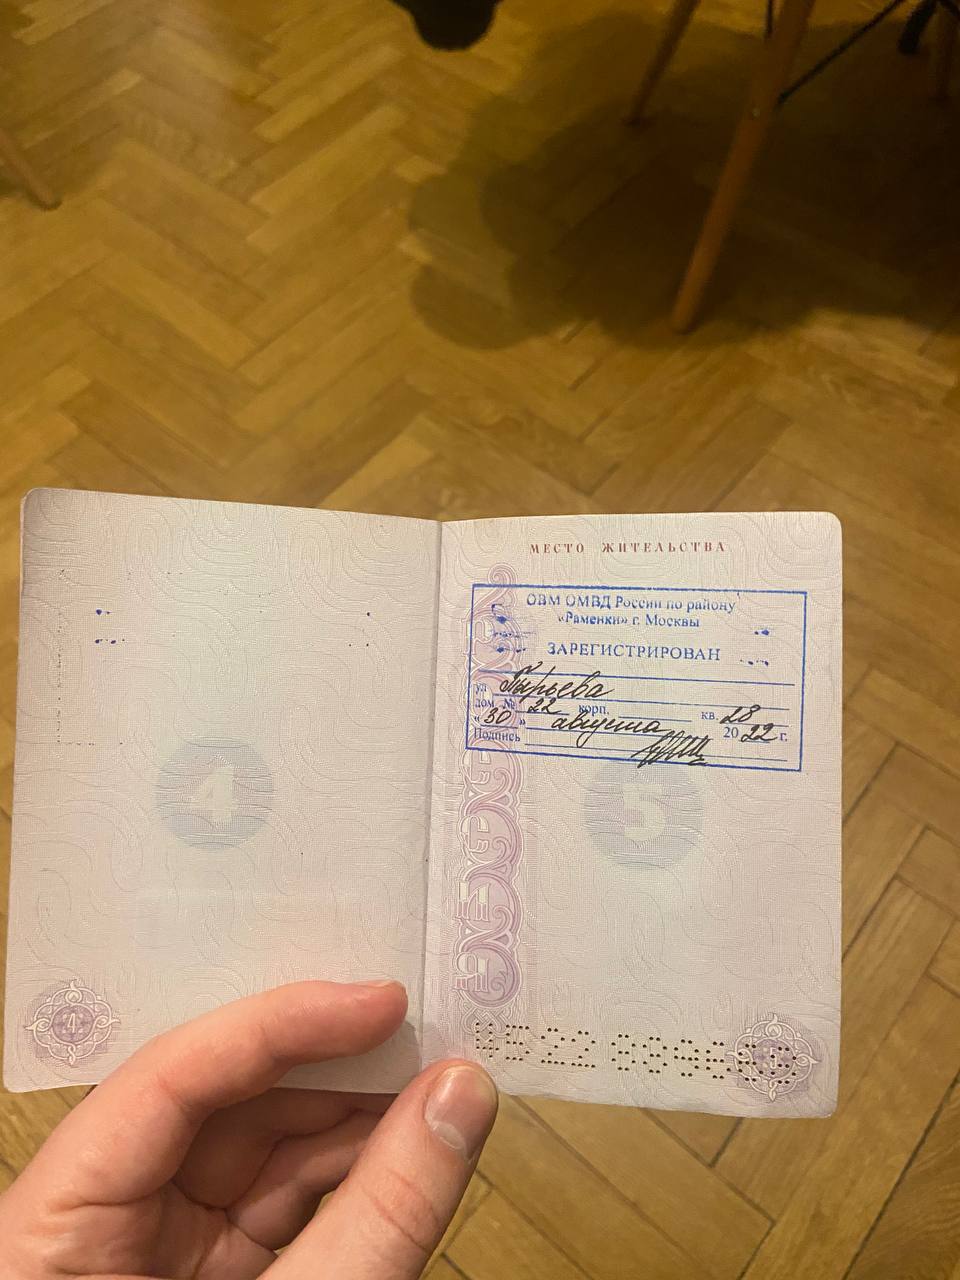 МЕСТО ЖИТЕЛЬСТВА
ОВМ ОМВД России по району
«Раменки» г. Москвы
ЗАРЕГИСТРИРОВАН
ул Пырьева
дом № 22 корп. кв. 28
« 30 » августа 20 22 г.
Подпись
4
5
4
45 22